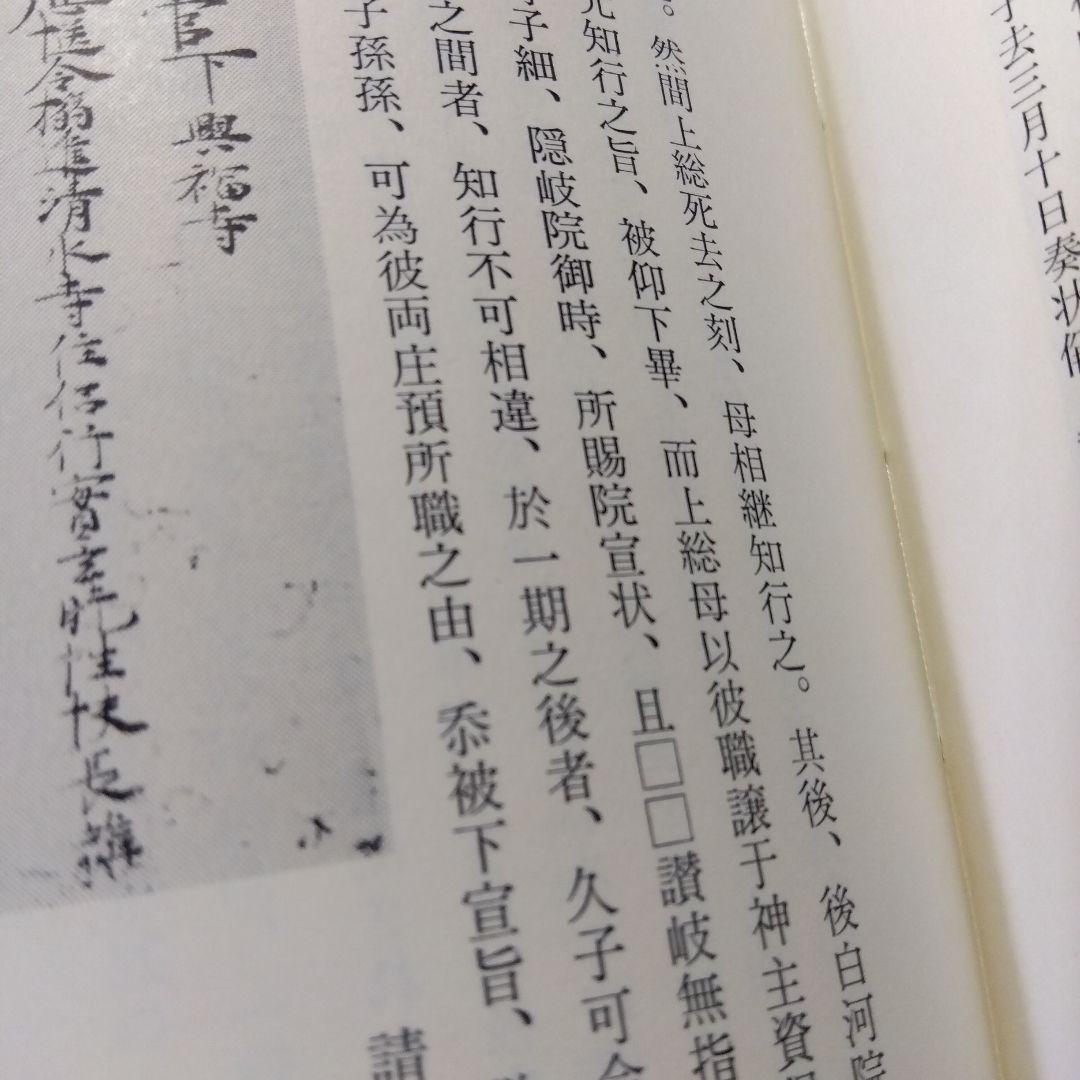 去三月十日奏状
。然間上総死去之刻、母相継知行之。其後、後白河院
知行之旨、被仰下畢、而上総母以彼職譲于神主資
子細、隠岐院御時、所賜院宣状、且□□讃岐無指
之間者、知行不可相違、於一期之後者、久子可
子孫孫、可為彼両庄預所職之由、忝被下宣旨、
請
官下興福寺
令搦進清水寺住侶行